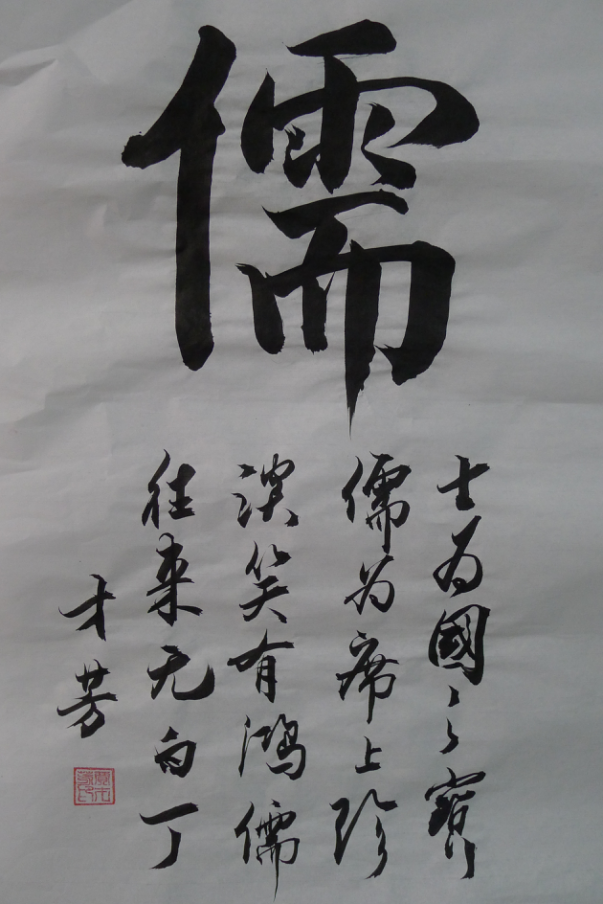 儒
士为國之寳
儒为席上珍
淡笑有鸿儒
往来无白丁
才芳